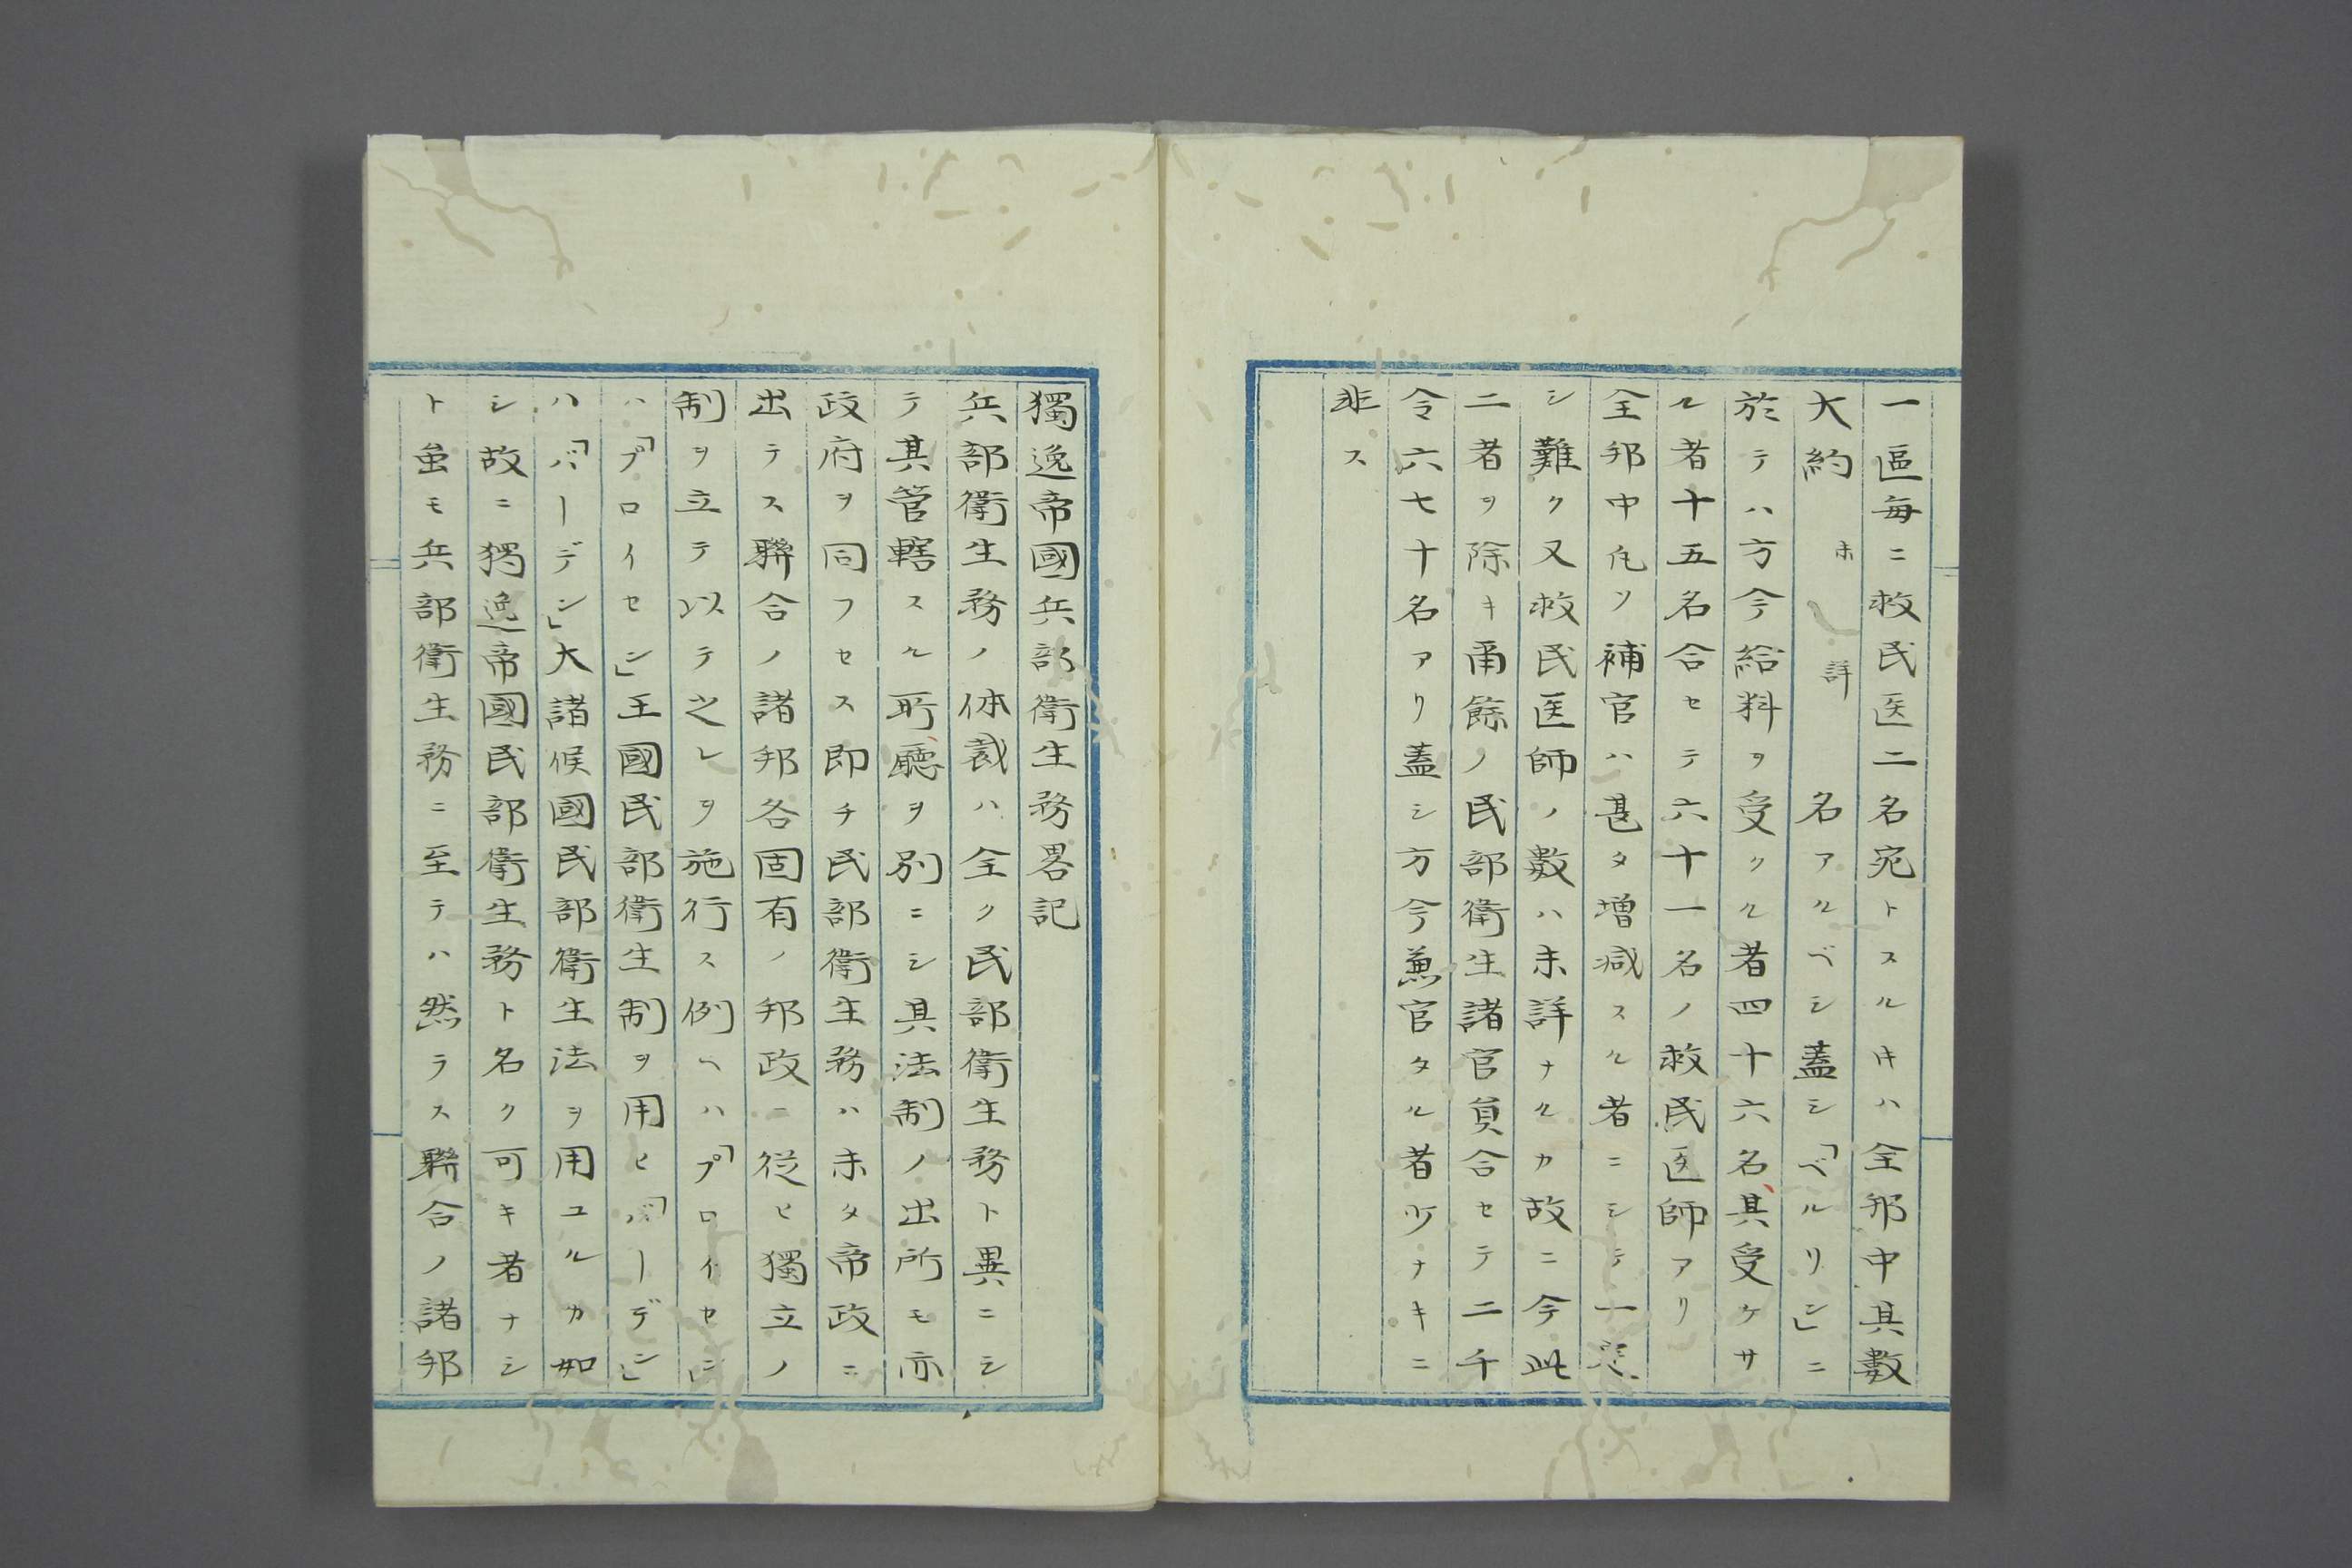 一區毎ニ救民医二名宛トスルキハ全邦中其數
大約 未詳 名アルベシ蓋シ「ベルリン」ニ
於テハ方今給料ヲ受クル者四十六名其受ケサ
ル者十五名合セテ六十一名ノ救民医師アリ
全邦中凢ソ補官ハ甚タ増減スル者ニシテ一定
シ難ク又救民医師ノ數ハ未詳ナルカ故ニ今此
二者ヲ除キ甭餘ノ民部衛生諸官員合セテ二千
令六七十名アリ蓋シ方今兼官タル者少ナキニ
非ス
獨逸帝國兵部衛生務畧記
兵部衛生務ノ体裁ハ全ク民部衛生務ト異ニシ
テ其管轄スル所廳ヲ別ニシ其法制ノ出所モ亦
政府ヲ同フセス即チ民部衛生務ハ未タ帝政ニ
出テス聯合ノ諸邦各固有ノ邦政ニ從ヒ獨立ノ
制ヲ立テ以テ之レヲ施行ス例ヘハ「プロイセン」
ハ「プロイセン」王國民部衛生制ヲ用ヒ「バーデン」
ハ「バーデン」大諸候國民部衛生法ヲ用ユルカ如
シ故ニ獨逸帝國民部衛生務ト名ク可キ者ナシ
ト虽モ兵部衛生務ニ至テハ然ラス聯合ノ諸邦